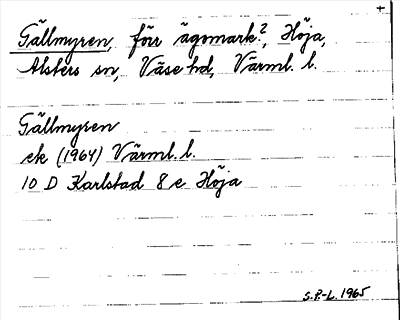 +
Gällmyren, förr ägomark?, Höja,
Alsters sn, Väse hd, Värml. l.
Gällmyren
ek (1964) Värml. l.
10 D Karlstad 8 e Höja
S.P.-L. 1965